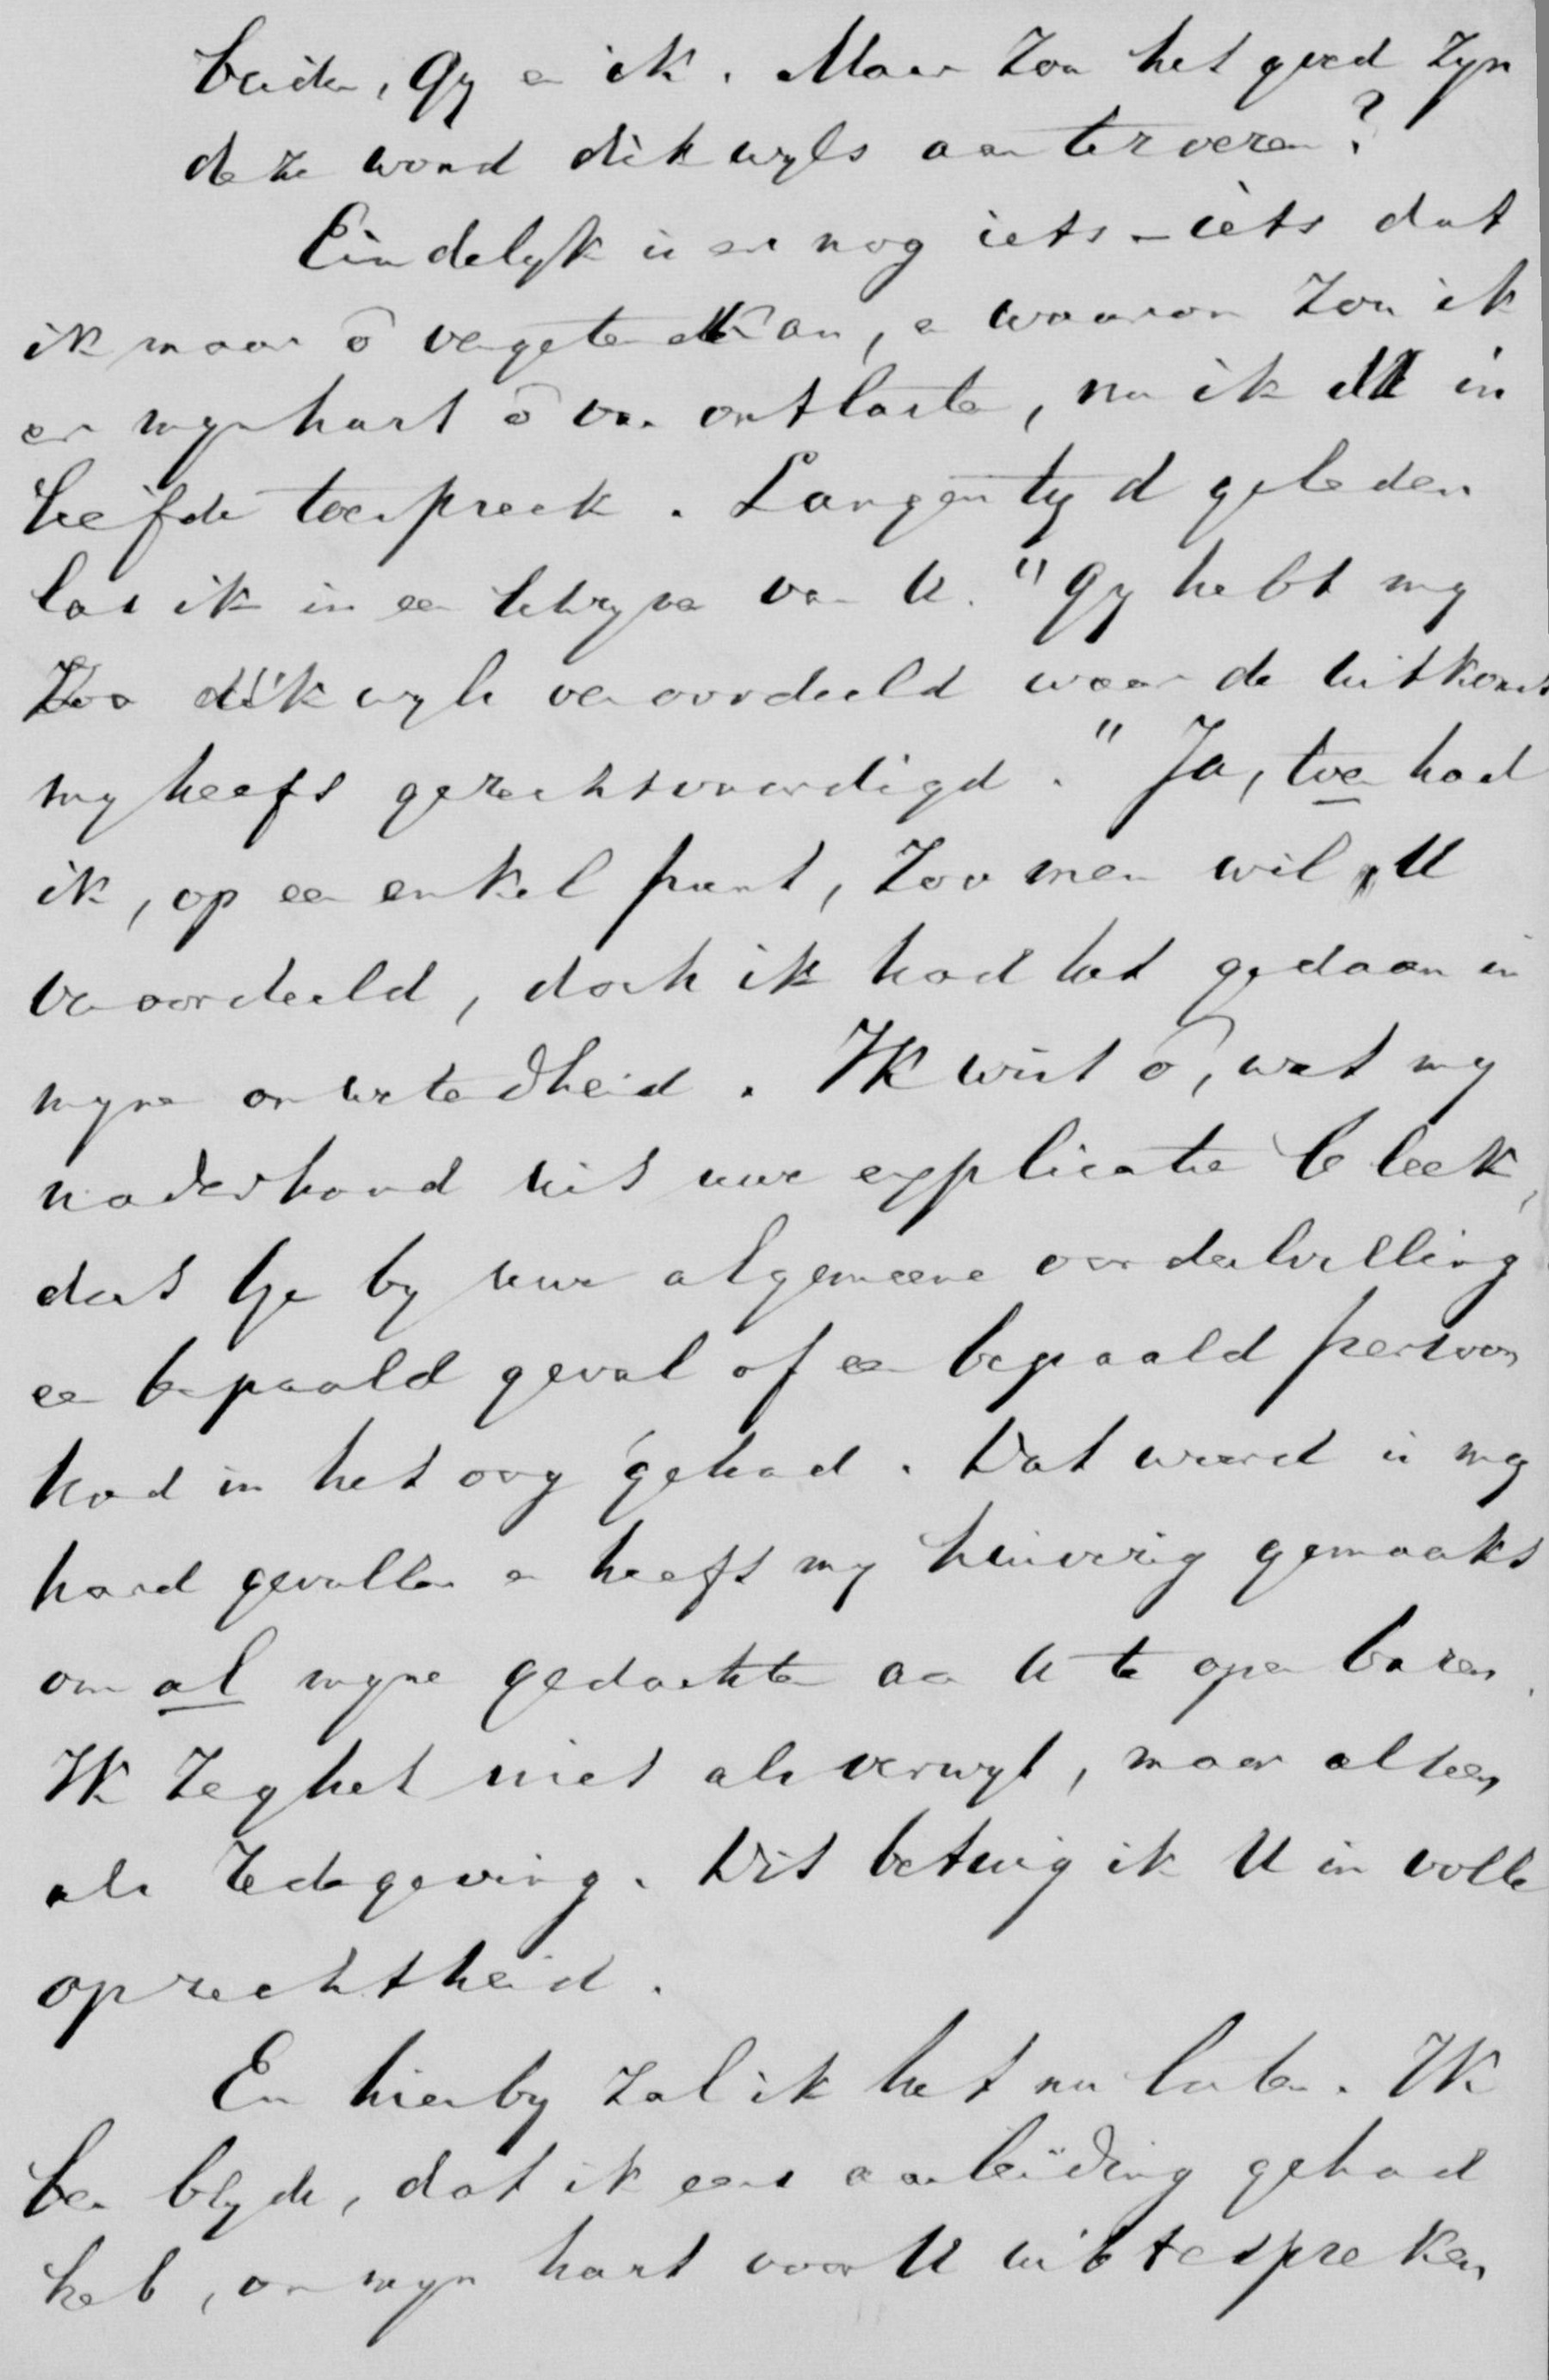 beiden, Gy en ik. Maar zou het goed zyn
deze wond dikwyls aanteroeren?
Eindelyk is er nog iets – iets dat
ik maar ō vergeten kan, en waarom zou ik
er myn hart ō van ontlasten, nu ik U in
liefde toespreek. Langen tyd geleden
las ik in een schryven van U. "Gy hebt my
zoo dikwyls veroordeeld waar de uitkomst
my heeft gerechtvaardigd." Ja, toen had
ik, op een enkel punt, zoo men wil, U
veroordeeld, doch ik had het gedaan in
myne onwetendheid. Ik wist ō, wat my
naderhand uit uwe explicatie bleek,
dat Ge by uwe algemeene oordeelvelling
een bepaald geval of een bepaald persoon
had in het oog gehad. Dat woord is my
hard gevallen en heeft my huiverig gemaakt
om al myne gedachten aan U te openbaren.
Ik zeg het niet als verwyt, maar alleen
als redegeving. Dit betuig ik U in volle
oprechtheid.
En hierby zal ik het nu laten. Ik
ben blyde, dat ik eens aanleiding gehad
heb, om myn hart voor U uittespreken